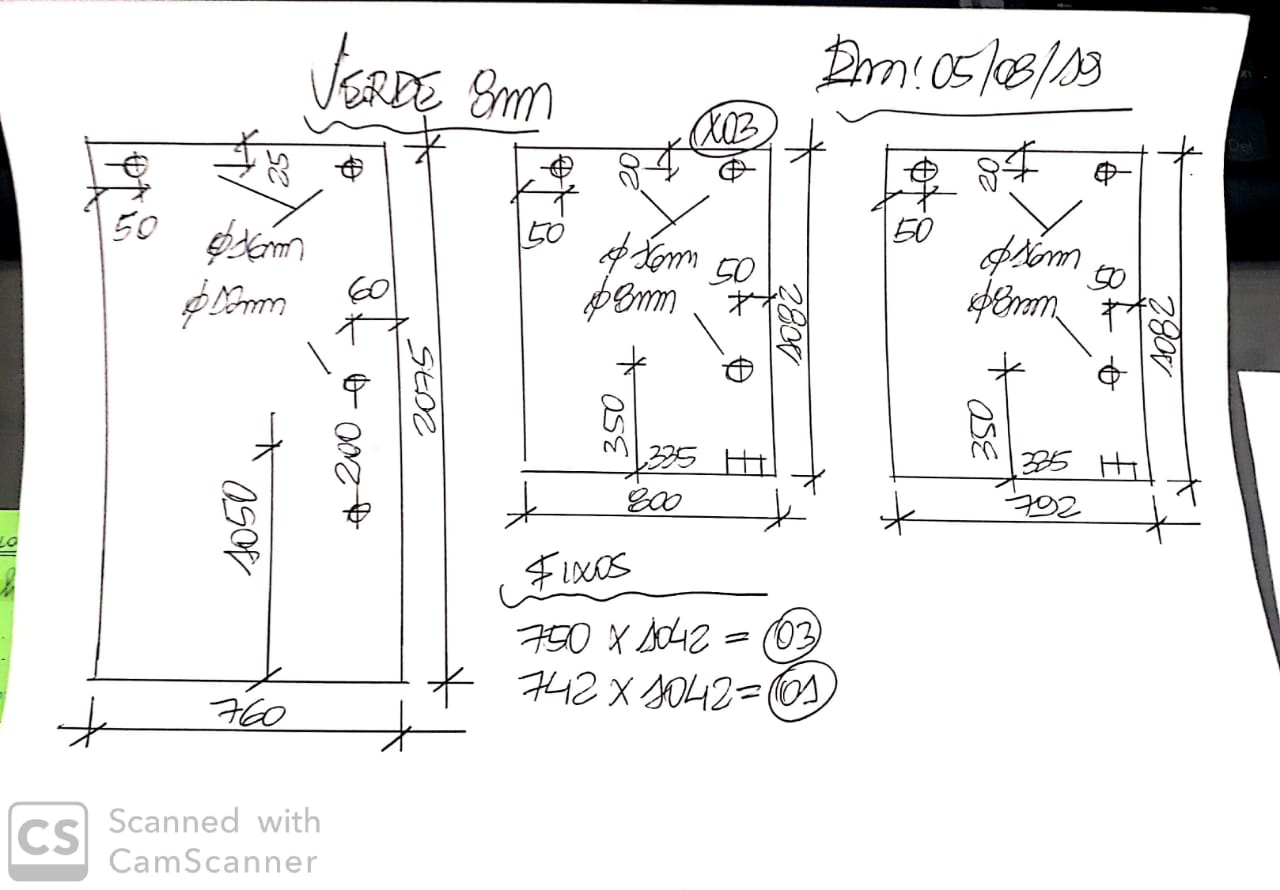 VERDE 8mm
Em: 05/08/19
X03
25
50
φ16mm
φ12mm
60
2075
200
1050
760
20
50
φ16mm
φ8mm
50
1082
350
335
800
20
50
φ16mm
φ8mm
50
1082
350
335
792
FIXOS
750 X 1042 = 03
742 X 1042 = 01
CS
Scanned with
CamScanner